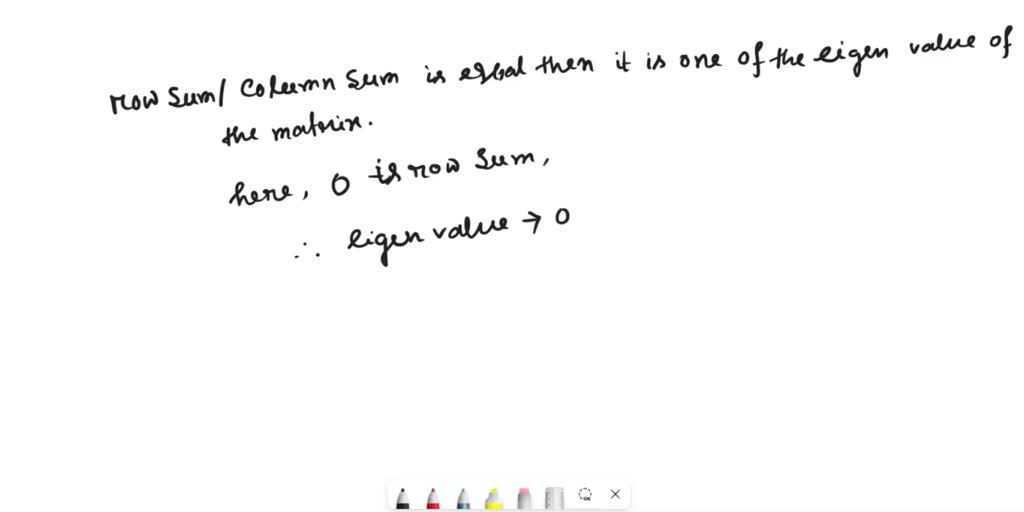 row sum/ column sum is equal then it is one of the eigen value of
the matrix.
here, 0 is row sum,
∴ eigen value → 0